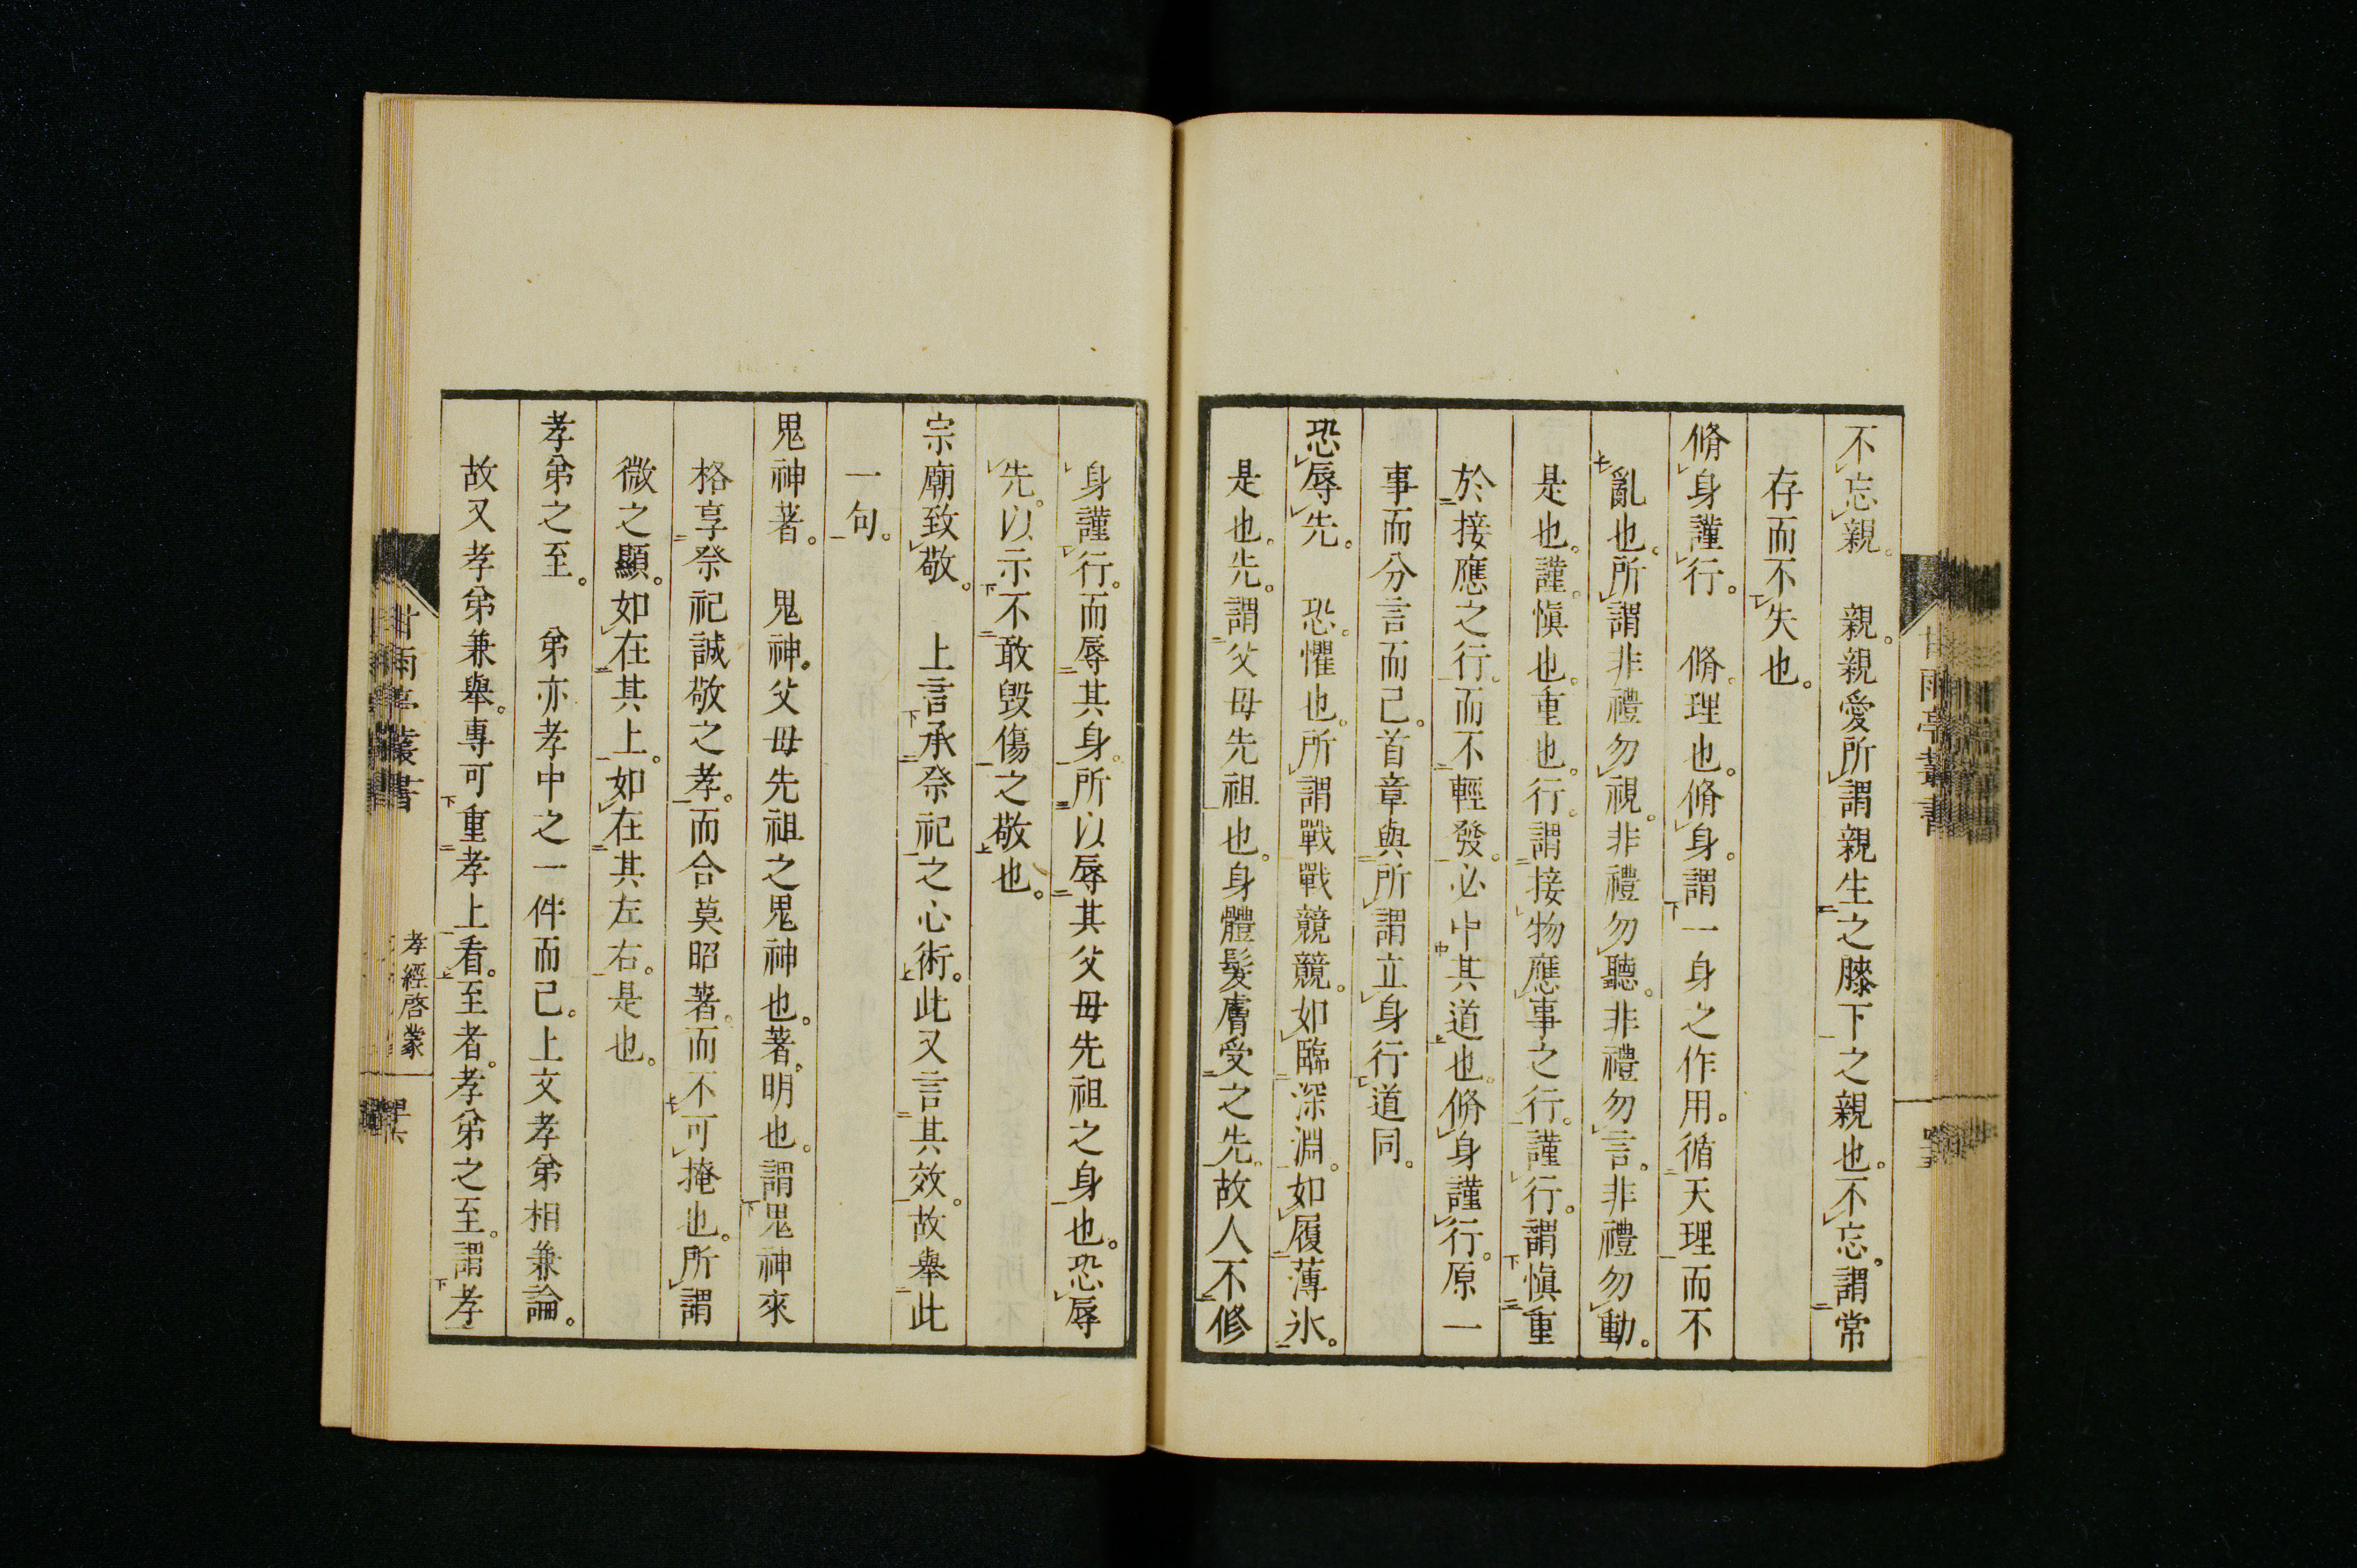 不忘親。　親。親愛所謂親生之膝下之親也。不忘。謂常
存而不失也。
脩身謹行。　脩。理也。脩身。謂一身之作用。循天理而不
亂也。所謂非禮勿視。非禮勿聽。非禮勿言。非禮勿動。
是也。謹。愼也。重也。行。謂接物應事之行。謹行。謂愼重
於接應之行。而不輕發。必中其道也。脩身謹行。原一
事而分言而已。首章與所謂立身行道同。
恐辱先。　恐。懼也。所謂戰戰兢兢。如臨深淵。如履薄氷。
是也。先。謂父母先祖也。身體髮膚受之先。故人不修
身謹行。而辱其身。所以辱其父母先祖之身也。恐辱
先。以示不敢毀傷之敬也。
宗廟致敬。　上言承祭祀之心術。此又言其效。故舉此
一句。
鬼神著。　鬼神。父母先祖之鬼神也。著。明也。謂鬼神來
格享祭祀誠敬之孝。而合莫昭著。而不可掩也。所謂
微之顯。如在其上。如在其左右。是也。
孝弟之至。　弟亦孝中之一件而已。上文孝弟相兼論。
故又孝弟兼舉。專可重孝上看。至者。孝弟之至。謂孝
甘雨亭叢書
孝經啓蒙